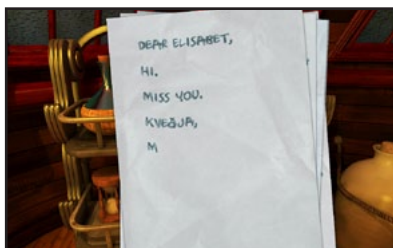 DEAR ELISABET,
HI.
MISS YOU.
KVEÐJA,
M